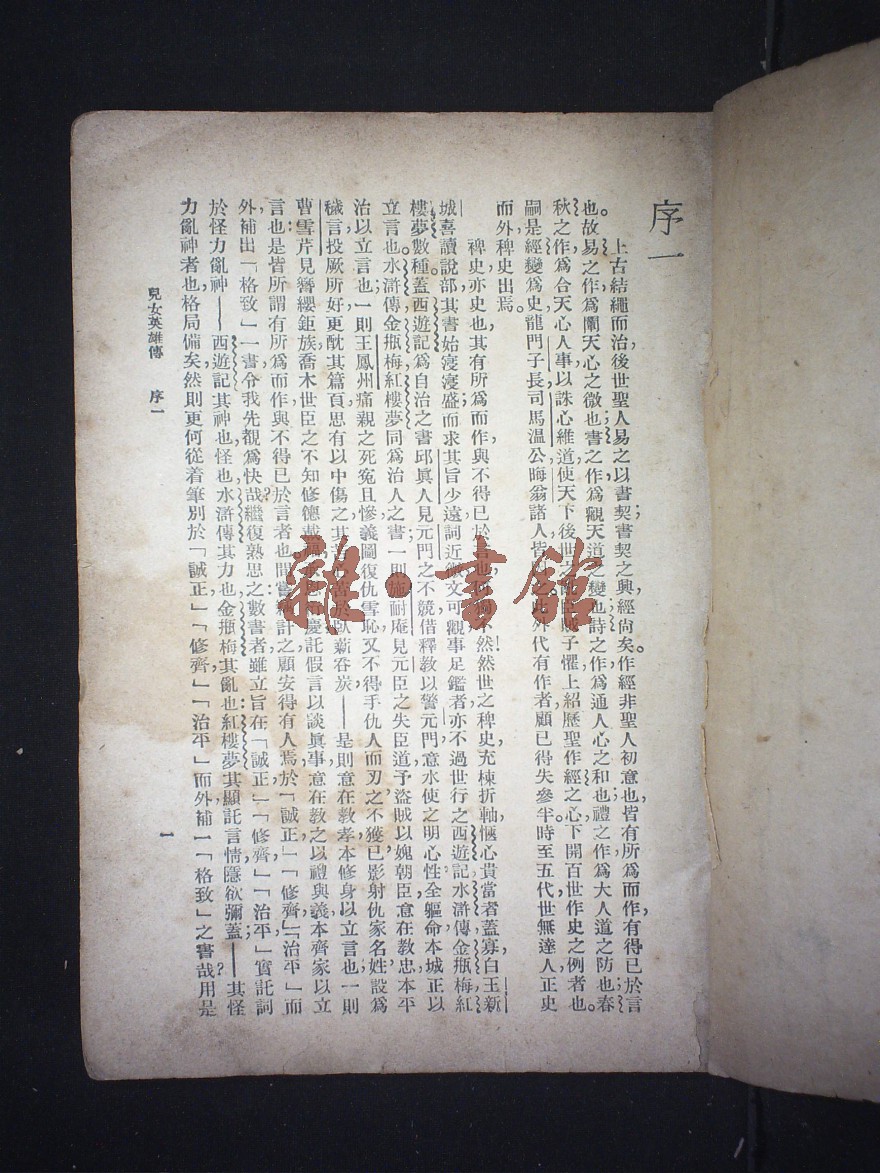 序一
上古結繩而治，後世聖人易之以書契；書契之興，經尚矣。作經非聖人初意也，皆有所爲而作，有得已於言
也。故易之作，爲闡天心之微也；書之作，爲觀天道之變也；詩之作，爲通人心之和也；禮之作，爲大人道之防也。春
秋之作，爲合天心人事，以誅心維道，使天下後世之亂臣賊子懼，上紹歷聖作經之心，下開百世作史之例者也。
嗣是經變爲史，龍門子長，司馬溫公，晦翁諸人皆因之。此外代有作者，顧已得失參半。時至五代，世無達人，正史
而外，稗史出焉。
稗史，亦史也，其有所爲而作，與不得已於言也，何獨不然！然世之稗史充棟折軸，愜心貴當者蓋寡。自王新
城喜讀說部，其書始寖寖盛；而求其旨少遠，詞近微，文可觀，事足鑑者，亦不過世行之西遊記，水滸傳，金瓶梅，紅
樓夢數種。蓋西遊記爲自治之書，邱眞人見元門之不競，借釋教以警元門，意水使之明心性，全軀命，本城正以
立言也。水滸傳，金瓶梅，紅樓夢，同爲治人之書：一則施耐庵見元臣之失臣道，予盜賊以媿朝臣，意在教忠，本平
治以立言也；一則王鳳州痛親之死寃且慘，義圖復仇雪恥，又不得手仇人而刃之，不獲已影射仇家名姓，設爲
穢言，投厥所好，更酖其篇頁，思有以中傷之，其苦心苦於臥薪吞炭——是則意在教孝，本修身以立言也；一則
曹雪芹見簪纓鉅族，喬木世臣之不知修德載福，承恩衍慶，託假言以談眞事，意在教之以禮與義，本齊家以立
言也：是皆所謂有所爲而作，與不得已於言者也。問書稱計之，顧安得有人焉，於「誠正」，「修齊」，「治平」而
外，補出「格致」一書，令我先覩爲快哉？繼復熟思之，數書者，雖立旨在「誠正」，「修齊」，「治平」，實託詞
於怪力亂神——西遊記，其神也，怪也；水滸傳，其力也；金瓶梅，其亂也；紅樓夢，其顯託言情，隱欲彌蓋——其怪
力亂神者也，格局備矣，然則更何從着筆別於「誠正」，「修齊」，「治平」而外，補一「格致」之書哉？用是
兒女英雄傳　序一
一
雜·書館